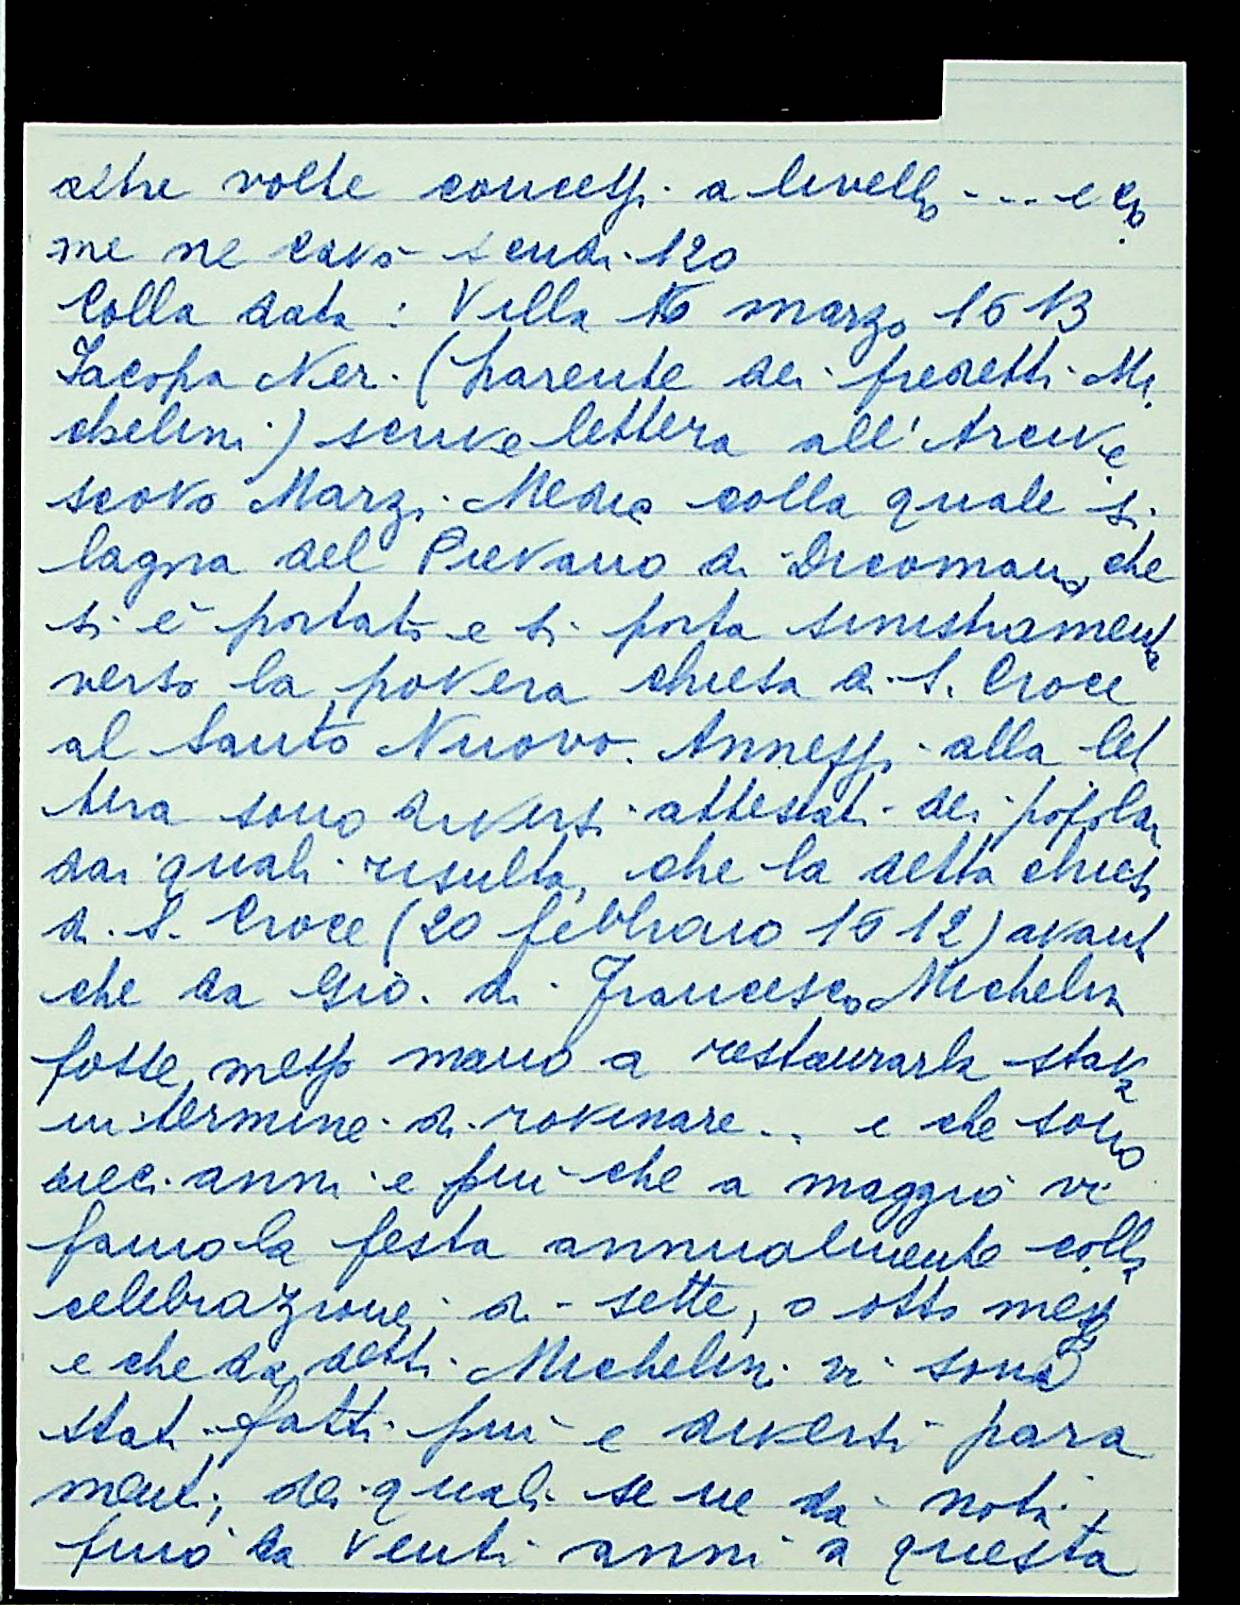 altre volte concessi a livello - - - e co
me ne cavò scudi 120
Colla data: Villa 16 marzo 1613
Jacopa Neri (parente dei predetti Mi
chelini) scrive lettera all'Arcive
scovo Marzi Medici colla quale si
lagna del Pievano di Dicomano che
si è portato e si porta sinistramente
verso la povera chiesa di S. Croce
al Santo Nuovo. Annessi alla let
tera sono diversi attestati dei popolani
dai quali risulta, che la detta chiesa
di S. Croce (20 febbraio 1612) avanti
che da Gio. di Francesco Michelini
fosse messo mano a restaurarla stava
in termine di rovinare .. e che sono
dieci anni e più che a maggio vi
fanno la festa annualmente colla
celebrazione di sette, o otto messe
e che da detti Michelini vi sono
stati fatti più e diversi para
menti, dei quali se ne dà nota,
fino da venti anni a questa